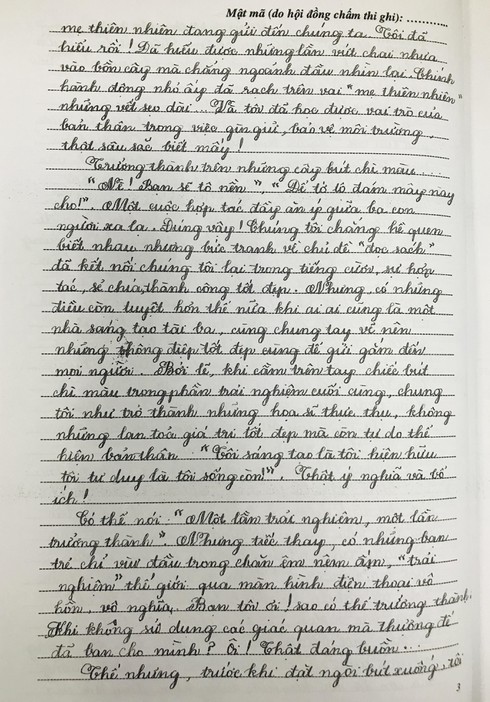 Mật mã (do hội đồng chấm thi ghi): ............
mẹ thiên nhiên đang gửi đến chúng ta. Tôi đã
hiểu rồi! Đã hiểu được những lần vứt chai nhựa
vào bồn cây mà chẳng ngoảnh đầu nhìn lại. Chính
hành động nhỏ ấy đã rạch trên vai "mẹ thiên nhiên"
những vết sẹo dài... Và tôi đã học được vai trò của
bản thân trong việc gìn giữ, bảo vệ môi trường,
thật sâu sắc biết mấy!
Trưởng thành trên những cây bút chì màu....
"Nè! Bạn sẽ tô nền", "Để tớ tô đám mây này
cho!" Một cuộc hợp tác đầy ăn ý giữa ba con
người xa lạ. Đúng vậy! Chúng tôi chẳng hề quen
biết nhau nhưng bức tranh về chủ đề "đọc sách"
đã kết nối chúng tôi lại trong tiếng cười, sự hợp
tác, sẻ chia, thành công tốt đẹp. Nhưng, có những
điều còn tuyệt hơn thế nữa khi ai ai cũng là một
nhà sáng tạo tài ba, cùng chung tay vẽ nên
những thông điệp tốt đẹp cùng để gửi gắm đến
mọi người. Bởi lẽ, khi cầm trên tay chiếc bút
chì màu trong phần trải nghiệm cuối cùng, chúng
tôi như trở thành những họa sĩ thực thụ, không
những lan toả giá trị tốt đẹp mà còn tự do thể
hiện bản thân "Tôi sáng tạo là tôi hiện hữu
tôi tư duy là tôi sống còn!". Thật ý nghĩa và bổ
ích!
Có thể nói: "Một lần trải nghiệm, một lần
trưởng thành". Nhưng tiếc thay, có những bạn
trẻ chỉ vùi đầu trong chăn êm nệm ấm, "trải
nghiệm" thế giới qua màn hình điện thoại vô
hồn, vô nghĩa. Bạn tôi ơi! sao có thể trưởng thành
khi không sử dụng các giác quan mà thượng đế
đã ban cho mình? Ôi! Thật đáng buồn...
Thế nhưng, trước khi đặt ngòi bút xuống, tôi
3